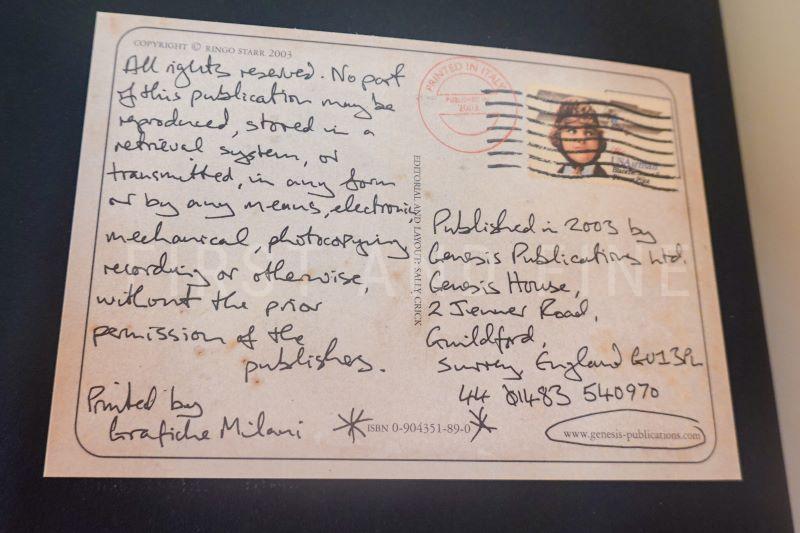 COPYRIGHT © RINGO STARR 2003
All rights reserved. No part
of this publication may be
reproduced, stored in a
retrieval system, or
transmitted, in any form
or by any means, electronic,
mechanical, photocopying
recording or otherwise,
without the prior
permission of the
publishers.
Printed by
Grafiche Milani
EDITORIAL AND LAYOUT: SALLY CRICK
ISBN 0-904351-89-0
PRINTED IN ITALY
PUBLISHED
2003
USAirmail
Published in 2003 by
Genesis Publications Ltd.
Genesis House,
2 Jenner Road,
Guildford,
Surrey England GU1 3PL
44 01483 540970
www.genesis-publications.com
FIRST AND FINE